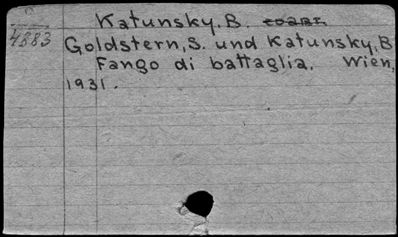 Katunsky, B.
4883
Goldstern, S. und Katunsky, B
Fango di battaglia. Wien,
1931.